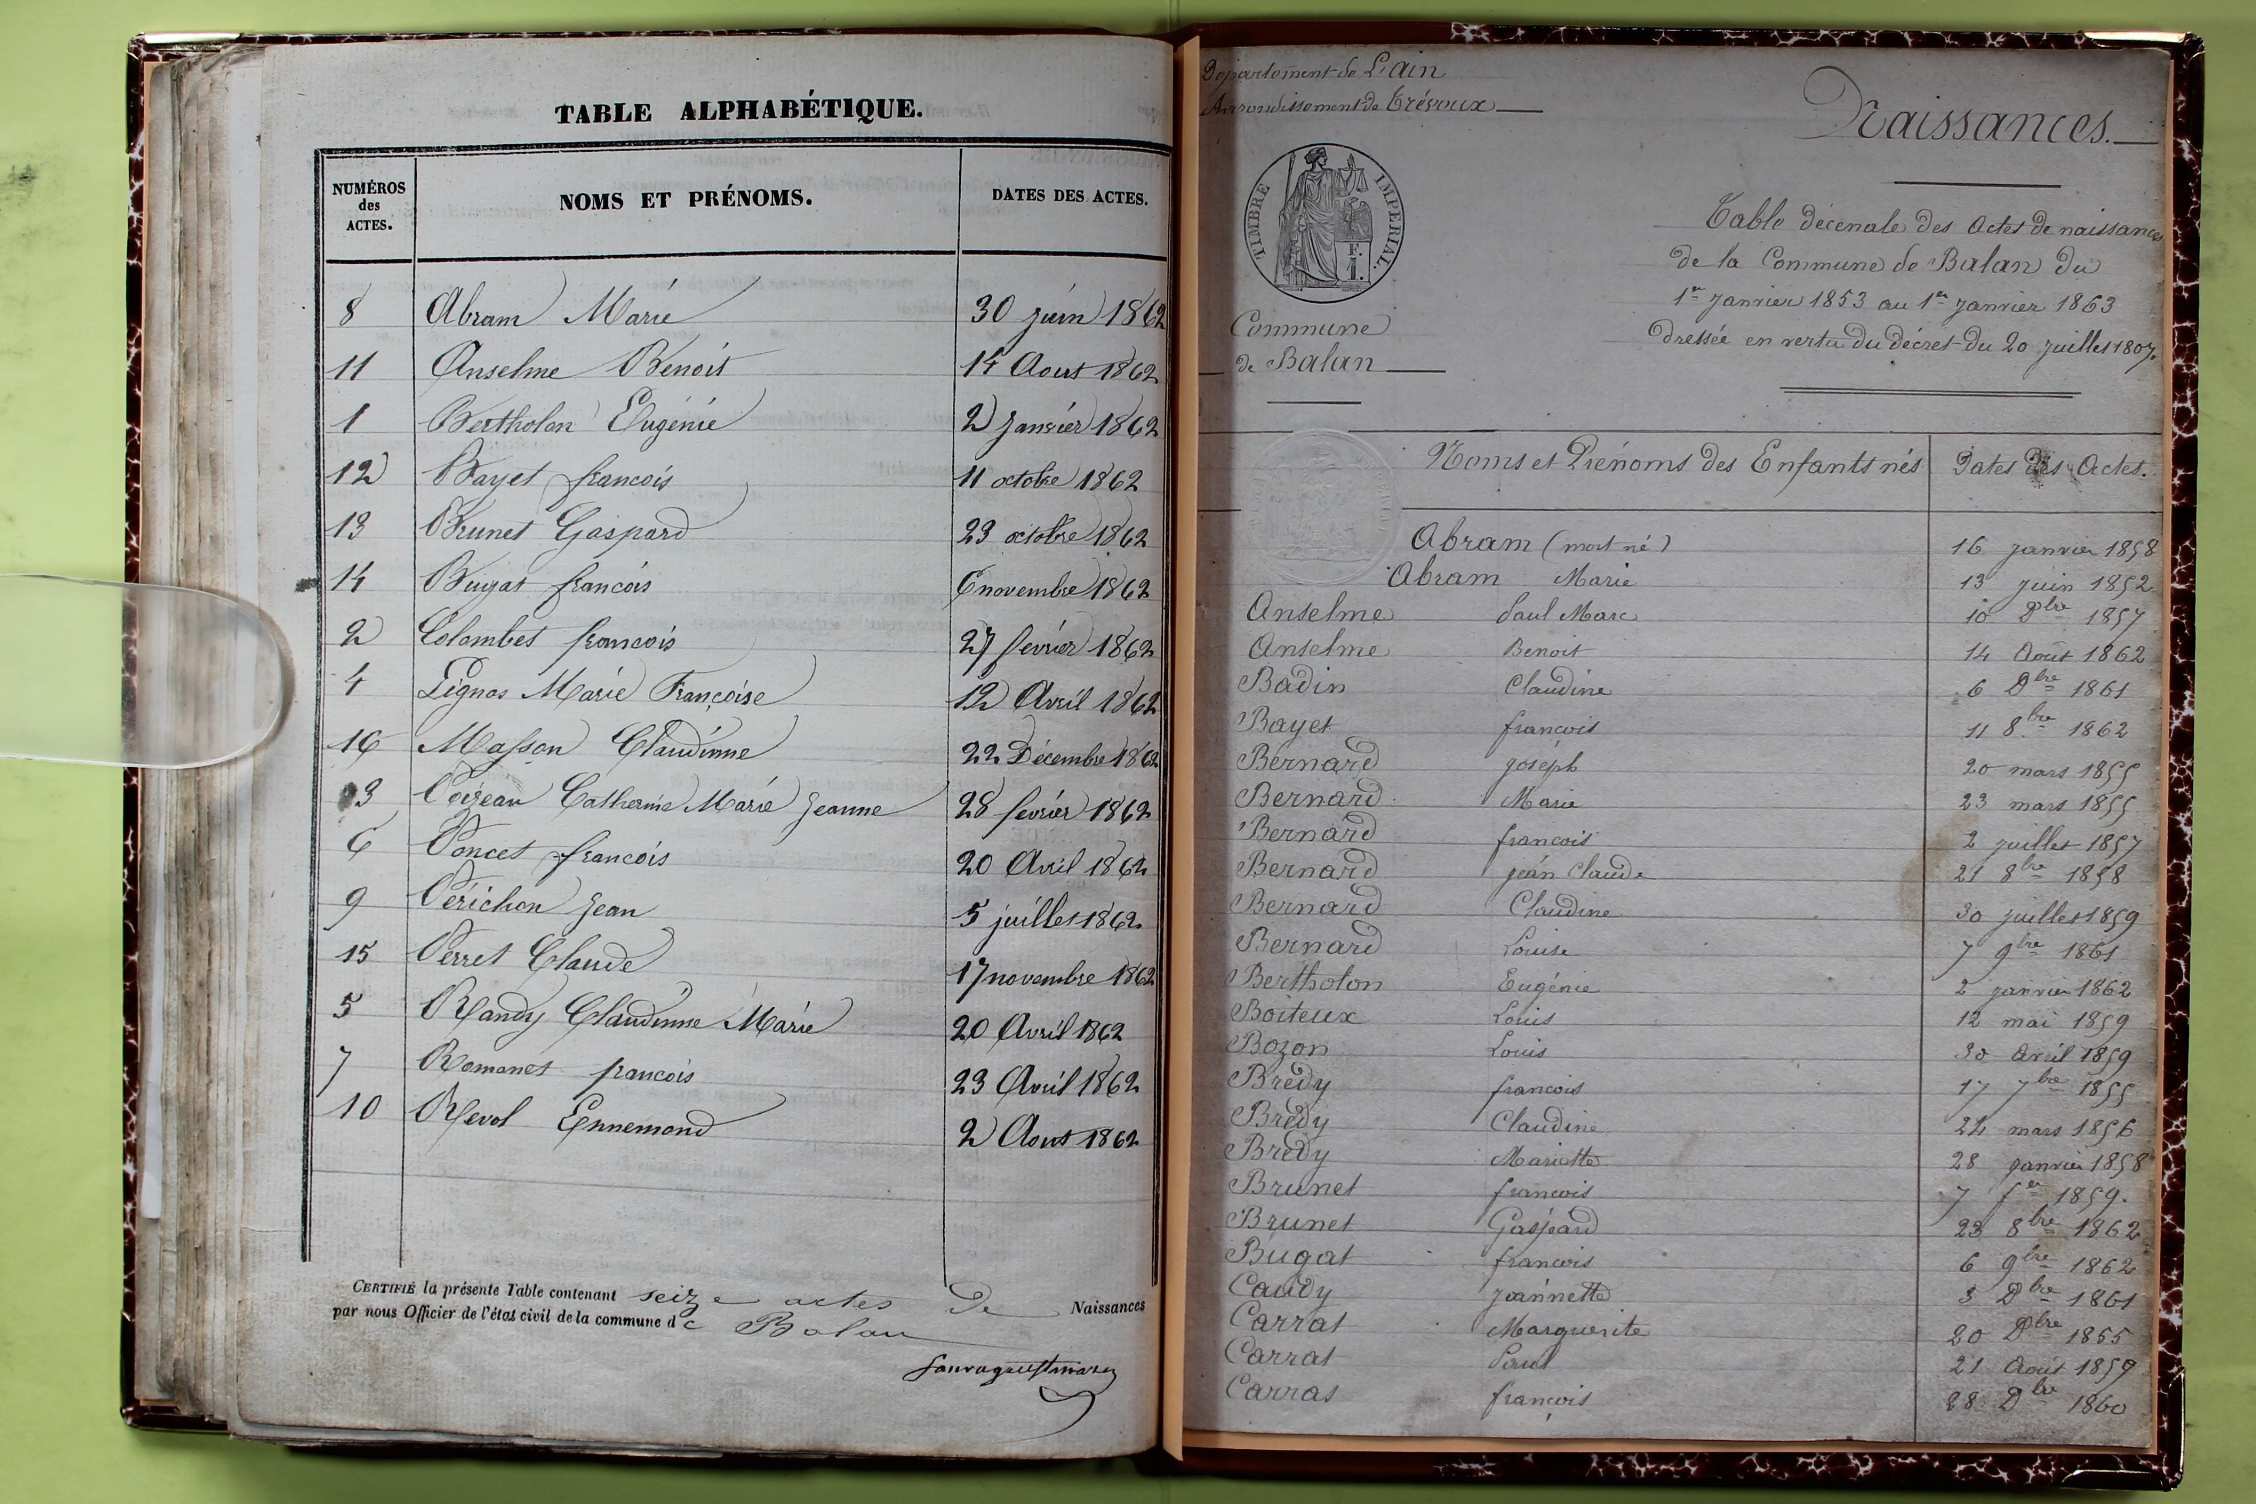 TABLE ALPHABÉTIQUE.
NUMÉROS des ACTES. NOMS ET PRÉNOMS. DATES DES ACTES.
8 Abram Marie 30 juin 1862
11 Anselme Benoit 14 Aout 1862
1 Bertholon Eugénie 2 Janvier 1862
12 Bayet francois 11 octobre 1862
13 Brunet Gaspard 23 octobre 1862
14 Bugat francois 6 novembre 1862
2 Colombet francois 27 fevrier 1862
4 Pignos Marie Françoise 12 Avril 1862
16 Masson Claudinne 22 Décembre 1862
3 Catherine Marie Jeanne 28 fevrier 1862
6 Poncet francois 20 Avril 1862
9 Périchon Jean 5 juillet 1862
15 Perret Claude 17 novembre 1862
5 Randy Claudinne Marie 20 Avril 1862
7 Romanet francois 23 Avril 1862
10 Revol Ennemond 2 Aout 1862
CERTIFIÉ la présente Table contenant seize actes de Naissances
par nous Officier de l'état civil de la commune de Balan
Département de L'ain
Arrondissement de Trévoux
Naissances.
TIMBRE IMPERIAL.
F.
1.
Commune
de Balan
Table décenale des Actes de naissances
de la Commune de Balan du
1er Janvier 1853 au 1er Janvier 1863
dressée en vertu du décret du 20 juillet 1807.
Noms et Prénoms des Enfants nés Dates des Actes.
Abram (mort né) 16 janvier 1858
Abram Marie 13 juin 1852
Anselme Paul Marc 10 Dbre 1857
Anselme Benoit 14 Août 1862
Badin Claudine 6 Dbre 1861
Bayet francois 11 8bre 1862
Bernard joséph 20 mars 1855
Bernard Marie 23 mars 1855
Bernard francois 2 juillet 1857
Bernard jean Claude 21 8bre 1858
Bernard Claudine 30 juillet 1859
Bernard Louise 7 9bre 1861
Bertholon Eugénie 2 janvier 1862
Boiteux Louis 12 mai 1859
Bozon Louis 30 Avril 1859
Bredy francois 17 7bre 1855
Bredy Claudine 22 mars 1856
Bredy Mariette 28 janvier 1858
Brunet francois 7 fer 1859.
Brunet Gaspard 23 8bre 1862
Bugat francois 6 9bre 1862
Caudy jeannette 3 Dbre 1861
Carrat Marguerite 20 Dbre 1855
Carrat Paul 21 Août 1857
Carras françois 28 Dbre 1860